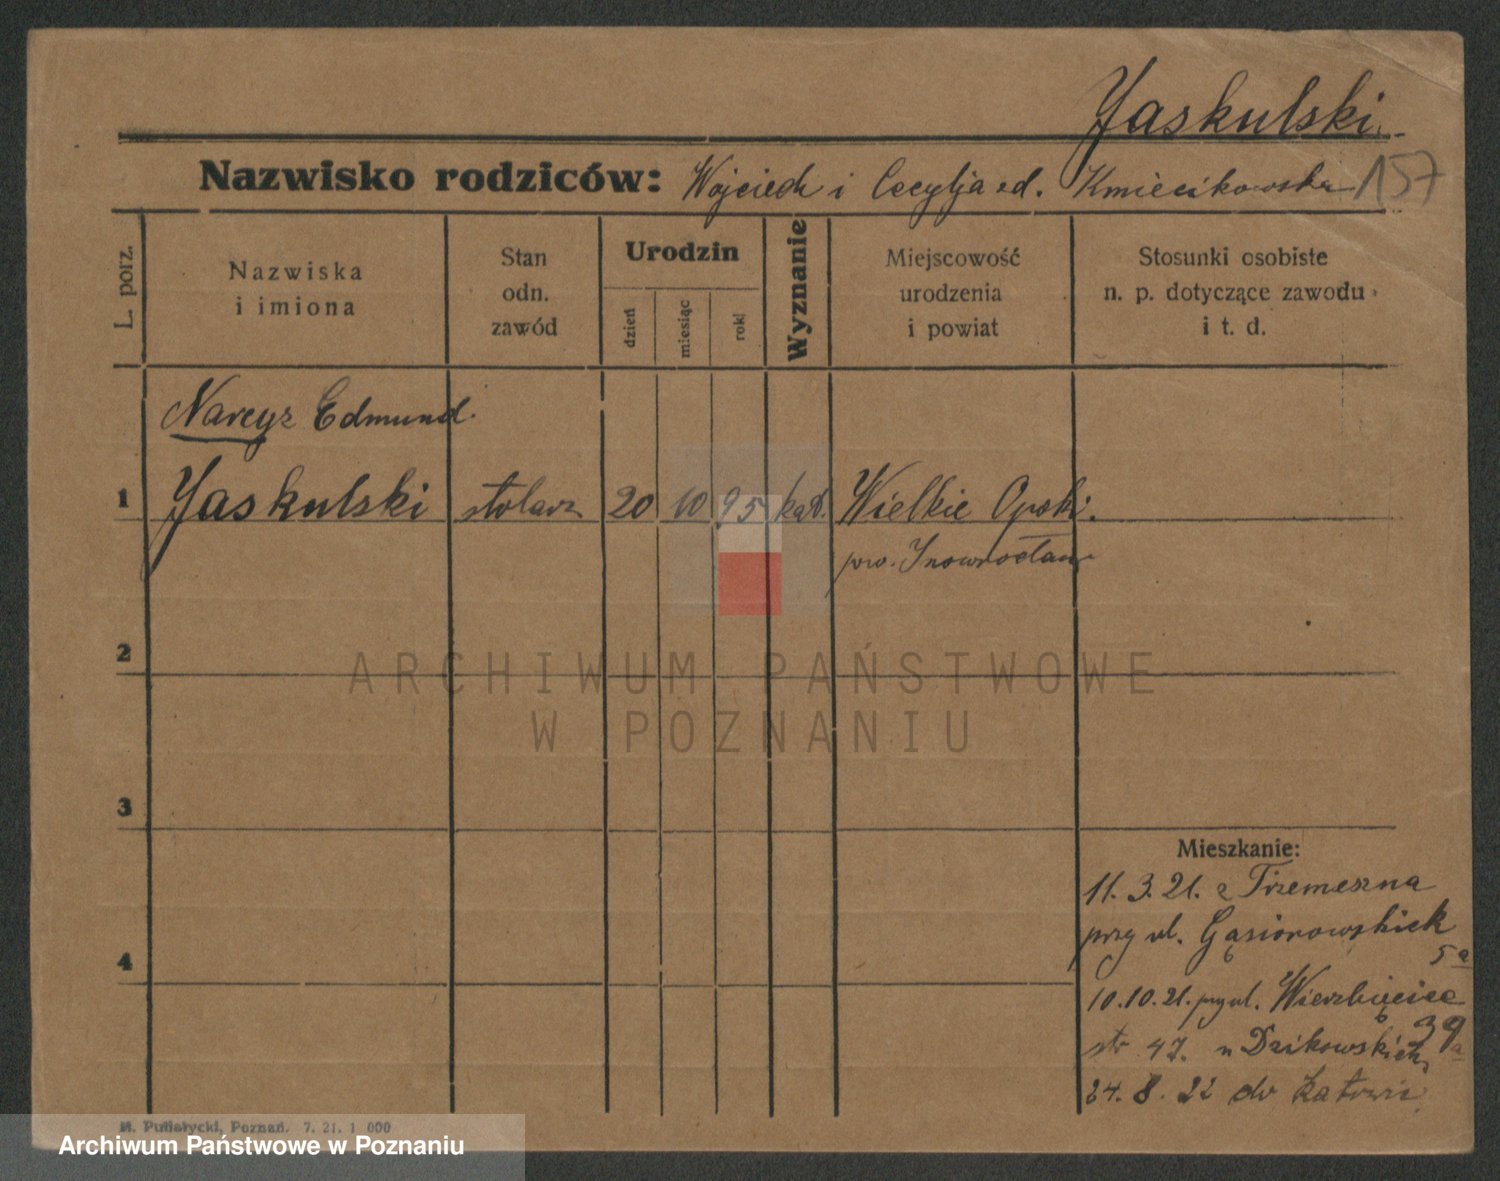 Jaskulski
157
Nazwisko rodziców: Wojciech i Cecylja zd. Kmiecikowska
L. porz.
Nazwiska
i imiona
Stan
odn.
zawód
Urodzin
dzień
miesiąc
rok
Wyznanie
Miejscowość
urodzenia
i powiat
Stosunki osobiste
n. p. dotyczące zawodu
i t. d.
Narcyz Edmund.
1 Jaskulski stolarz 20 10 95 kat. Wielkie Opoki.
pow. Inowrocław
2
ARCHIWUM PAŃSTWOWE
W POZNANIU
3
Mieszkanie:
11.3.21. z Trzemeszna
przy ul. Gąsiorowskich
5a
4
10.10.21. przy ul. Wierzbięcice
39a
str 47. u Dzikowskich
24.8.22 do Katowic
M. Putiatycki, Poznań. 7. 21. 1 000
Archiwum Państwowe w Poznaniu